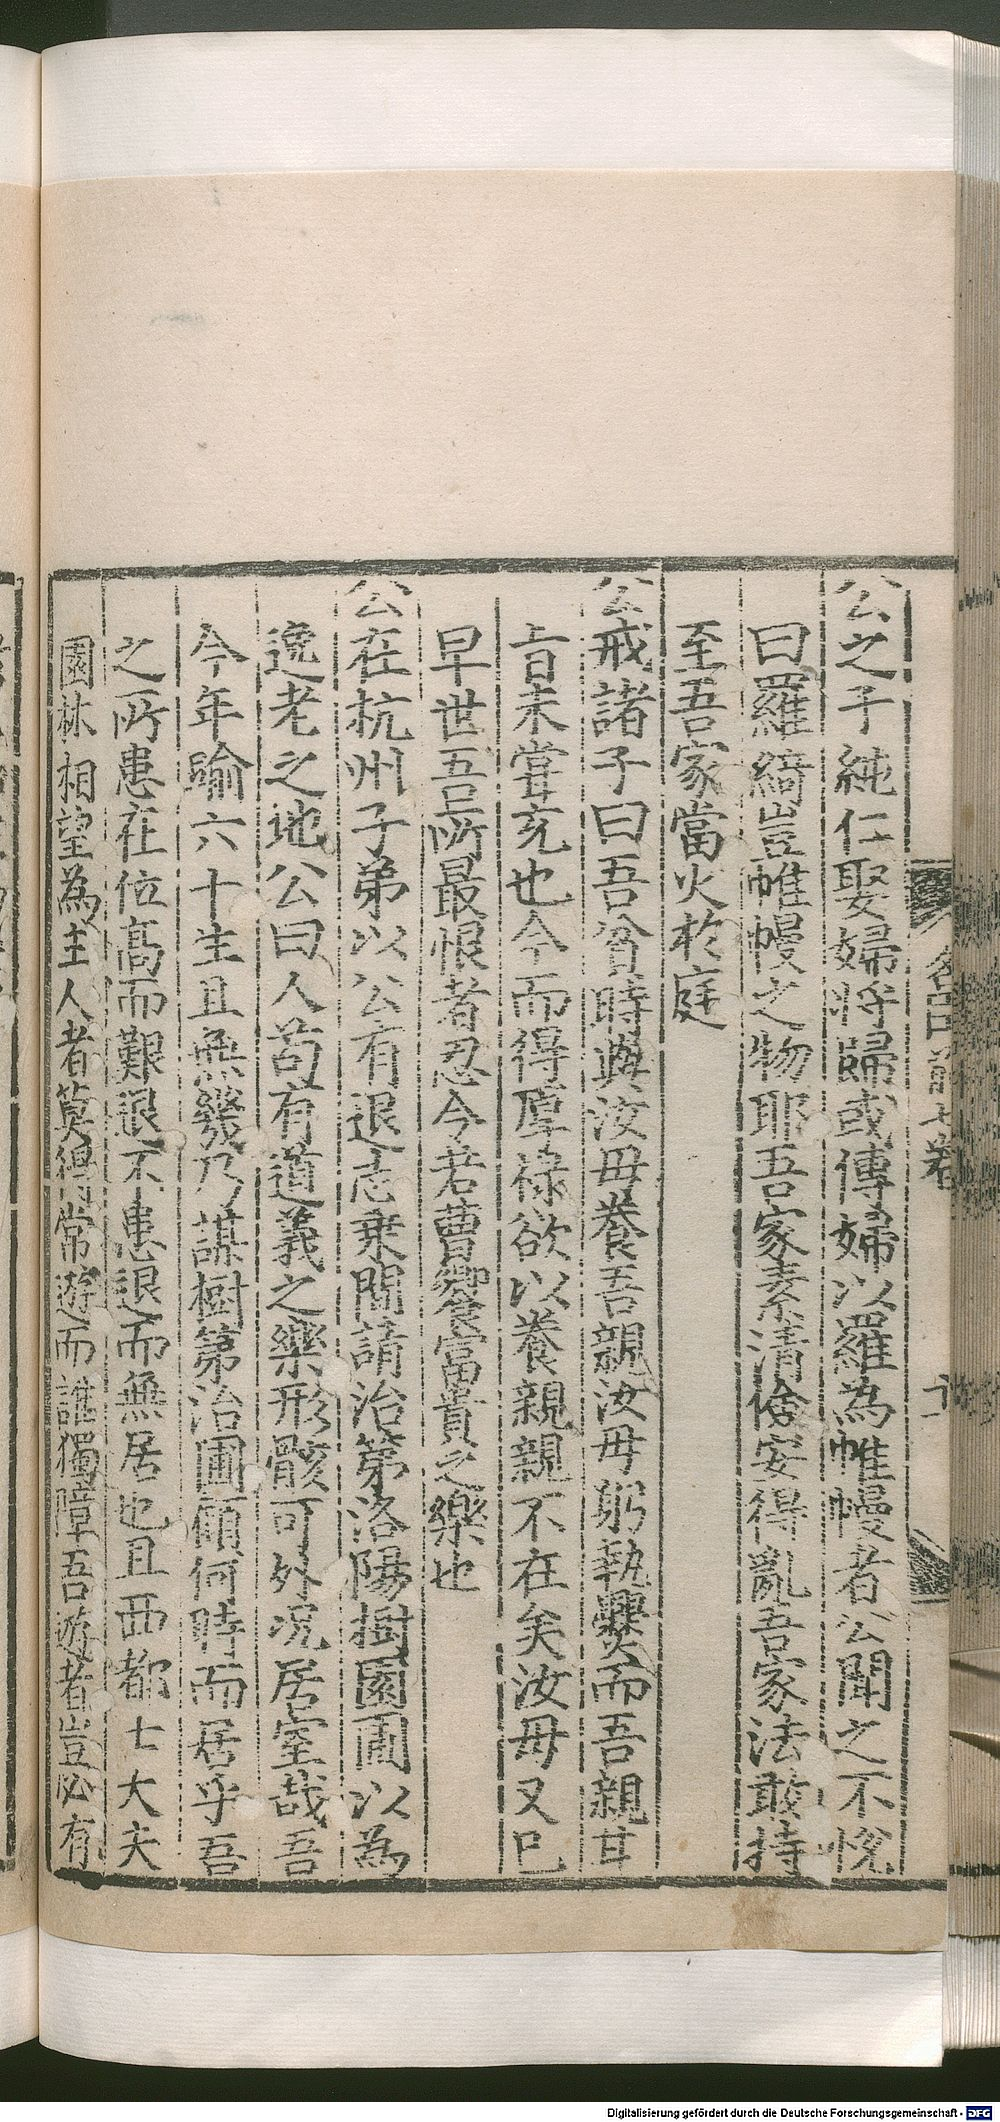 公之子純仁娶婦将歸或傳婦以羅為帷幔者公聞之不恱
曰羅綺豈帷幔之物耶吾家素清儉安得亂吾家法敢持
至吾家當火於庭
公戒諸子曰吾貧時與汝母養吾親汝母躬執爨而吾親甘
旨未嘗充也今而得厚祿欲以養親親不在矣汝母又已
早世吾所最恨者忍令若曹饗富貴之樂也
公在杭州子弟以公有退志乗間請治第洛陽樹園圃以為
逸老之地公曰人苟有道義之樂形骸可外况居室哉吾
今年踰六十生且無幾乃謀樹第治圃顧何時而居乎吾
之所患在位髙而艱退不患退而無居也且西都士大夫
園林相望為主人者莫得常遊而誰獨障吾遊者豈必有
名臣前七卷
十
Digitalisierung gefördert durch die Deutsche Forschungsgemeinschaft - DFG